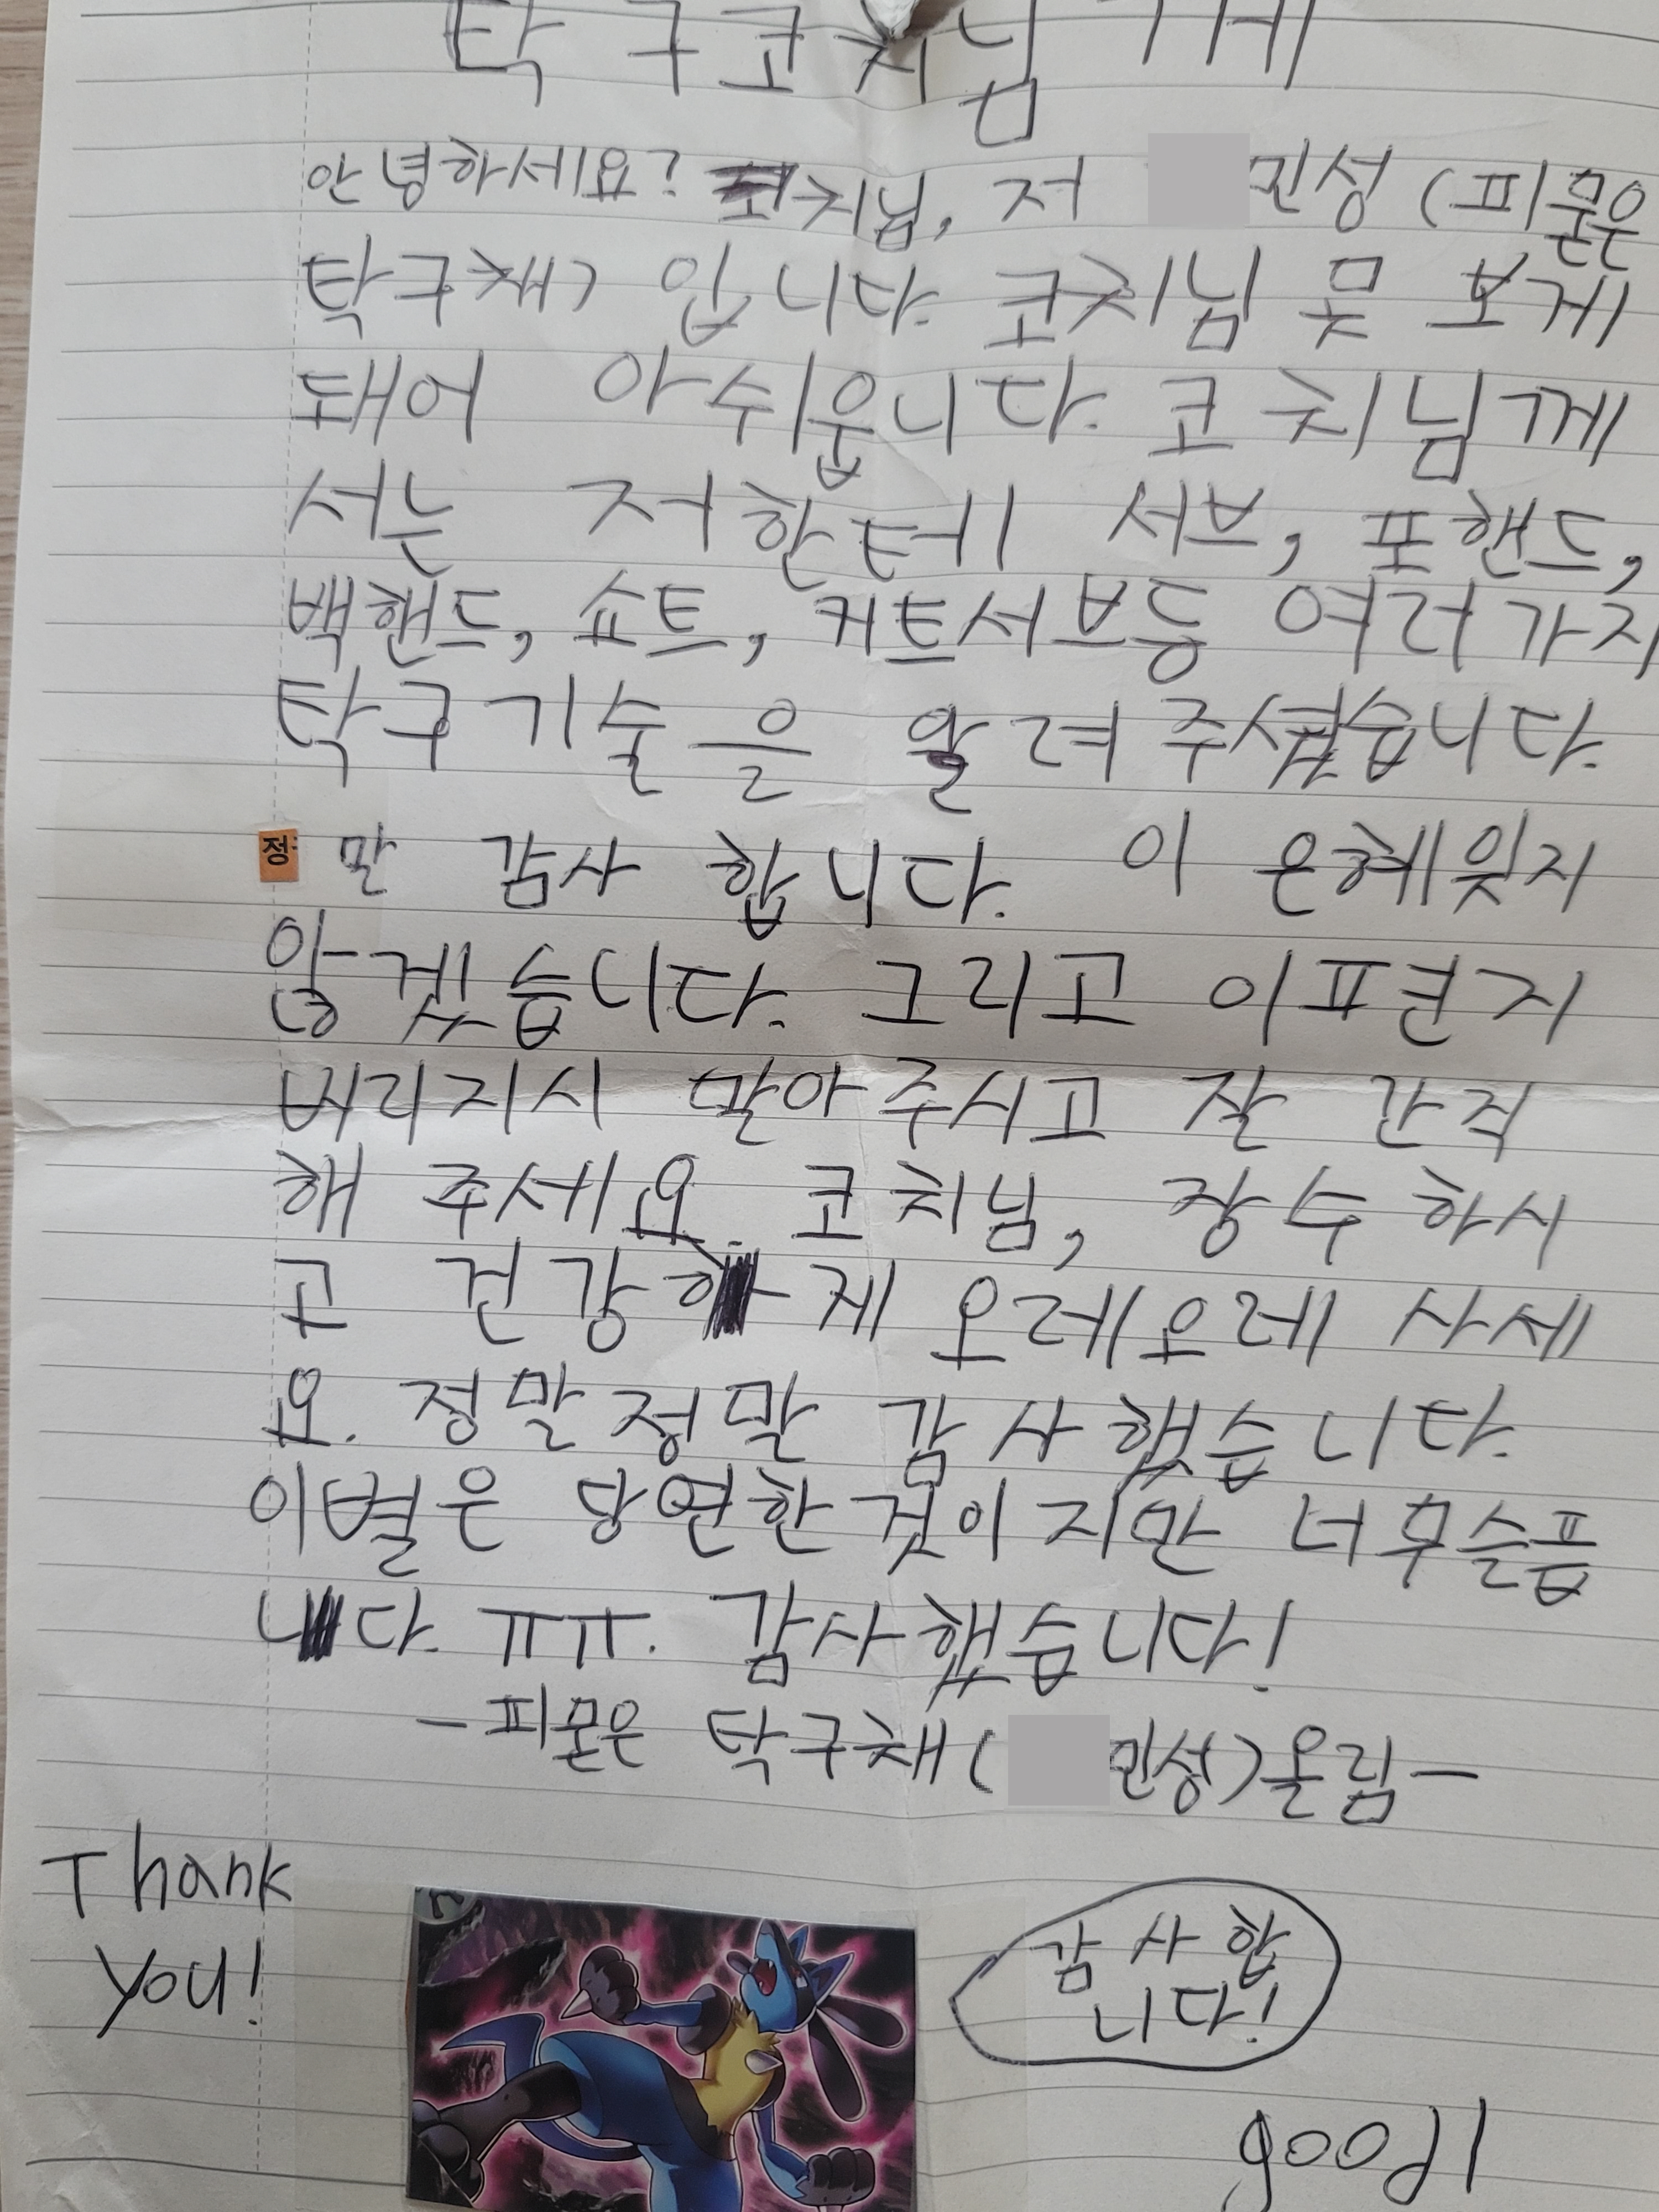 탁구코치님께
안녕하세요? 코치님, 저 민성 (피묻은
탁구채) 입니다. 코치님 못 보게
돼어 아쉬웁니다. 코치님께
서는 저한테 서브, 포핸드,
백핸드, 쇼트, 커트서브등 여러가지
탁구기술을 알려주셨습니다.
정말 감사 합니다. 이 은혜잊지
않겠습니다. 그리고 이편지
버리지시 말아주시고 잘 간직
해 주세요. 코치님, 장수하시
고 건강하게 오레오레 사세
요. 정말정말 감사했습니다.
이별은 당연한것이지만 너무슬픕
니다. ㅠㅠ. 감사했습니다!
-피묻은 탁구채( 민성)올림-
Thank
you!
감사합
니다!
good!